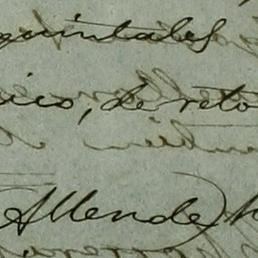 quintales
ico, de reto
(Allende)